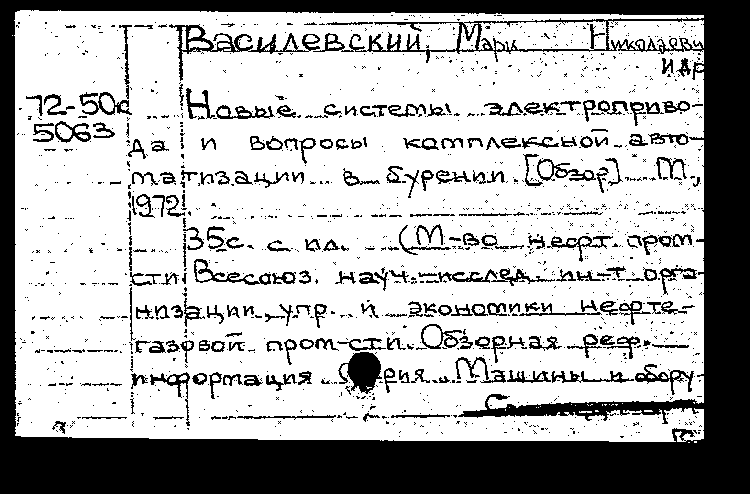 Василевский, Мари Николаеви
и др
72-50к
5063
Новые системы электроприво-
да и вопросы комплексной авто-
матизации в бурении [Обзор] М.,
1972.
35с. с ил. (М-во нефт. пром-
сти Всесоюз. науч.-исслед. ин-т орга-
низации, упр. и экономики нефте-
газовой пром-сти. Обзорная реф.
информация. Серия „Машины и обору-